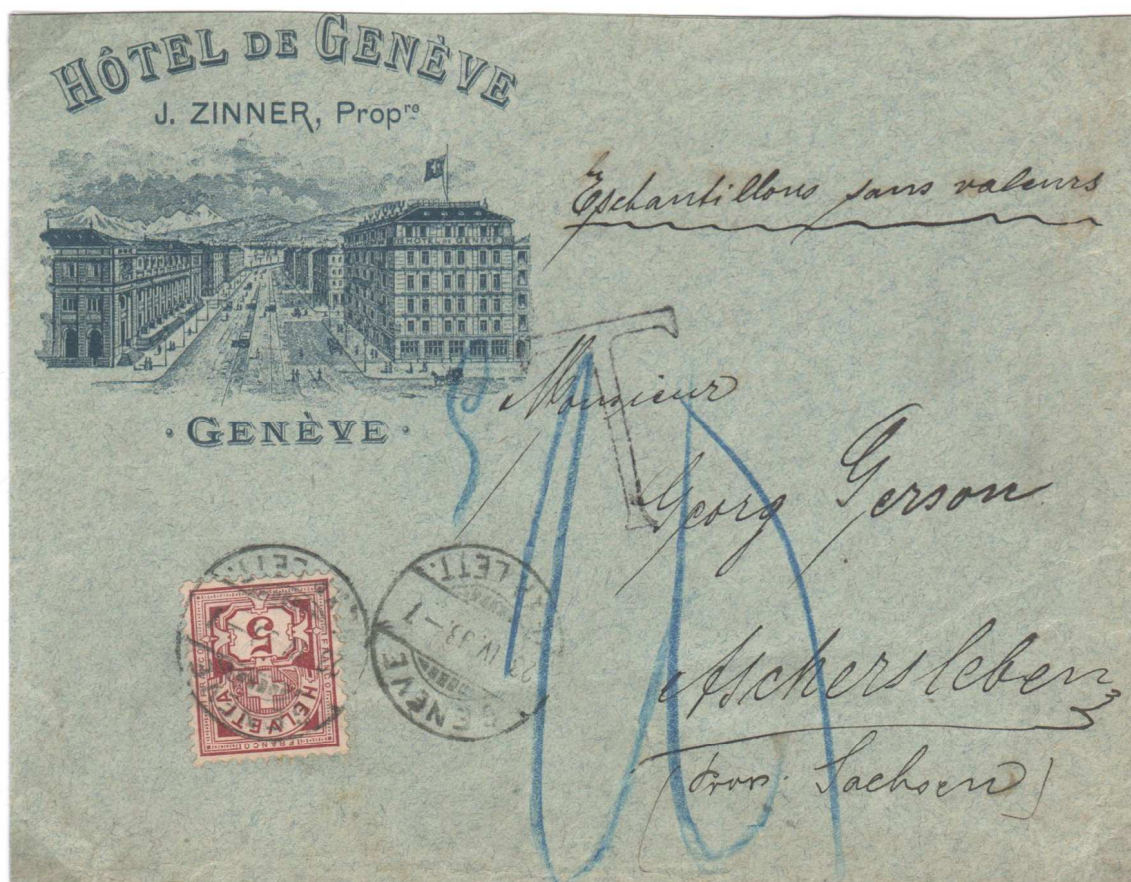 HÔTEL DE GENÈVE
J. ZINNER, Propre
HÔTEL DE GENÈVE
· GENÈVE ·
Eschantillons sans valeurs
T
Monsieur
Georg Gerson
Aschersleben
(Prov. Sachsen)
5
HELVETIA
FRANCO
GENÈVE
LETT.
IV. 93 – 1